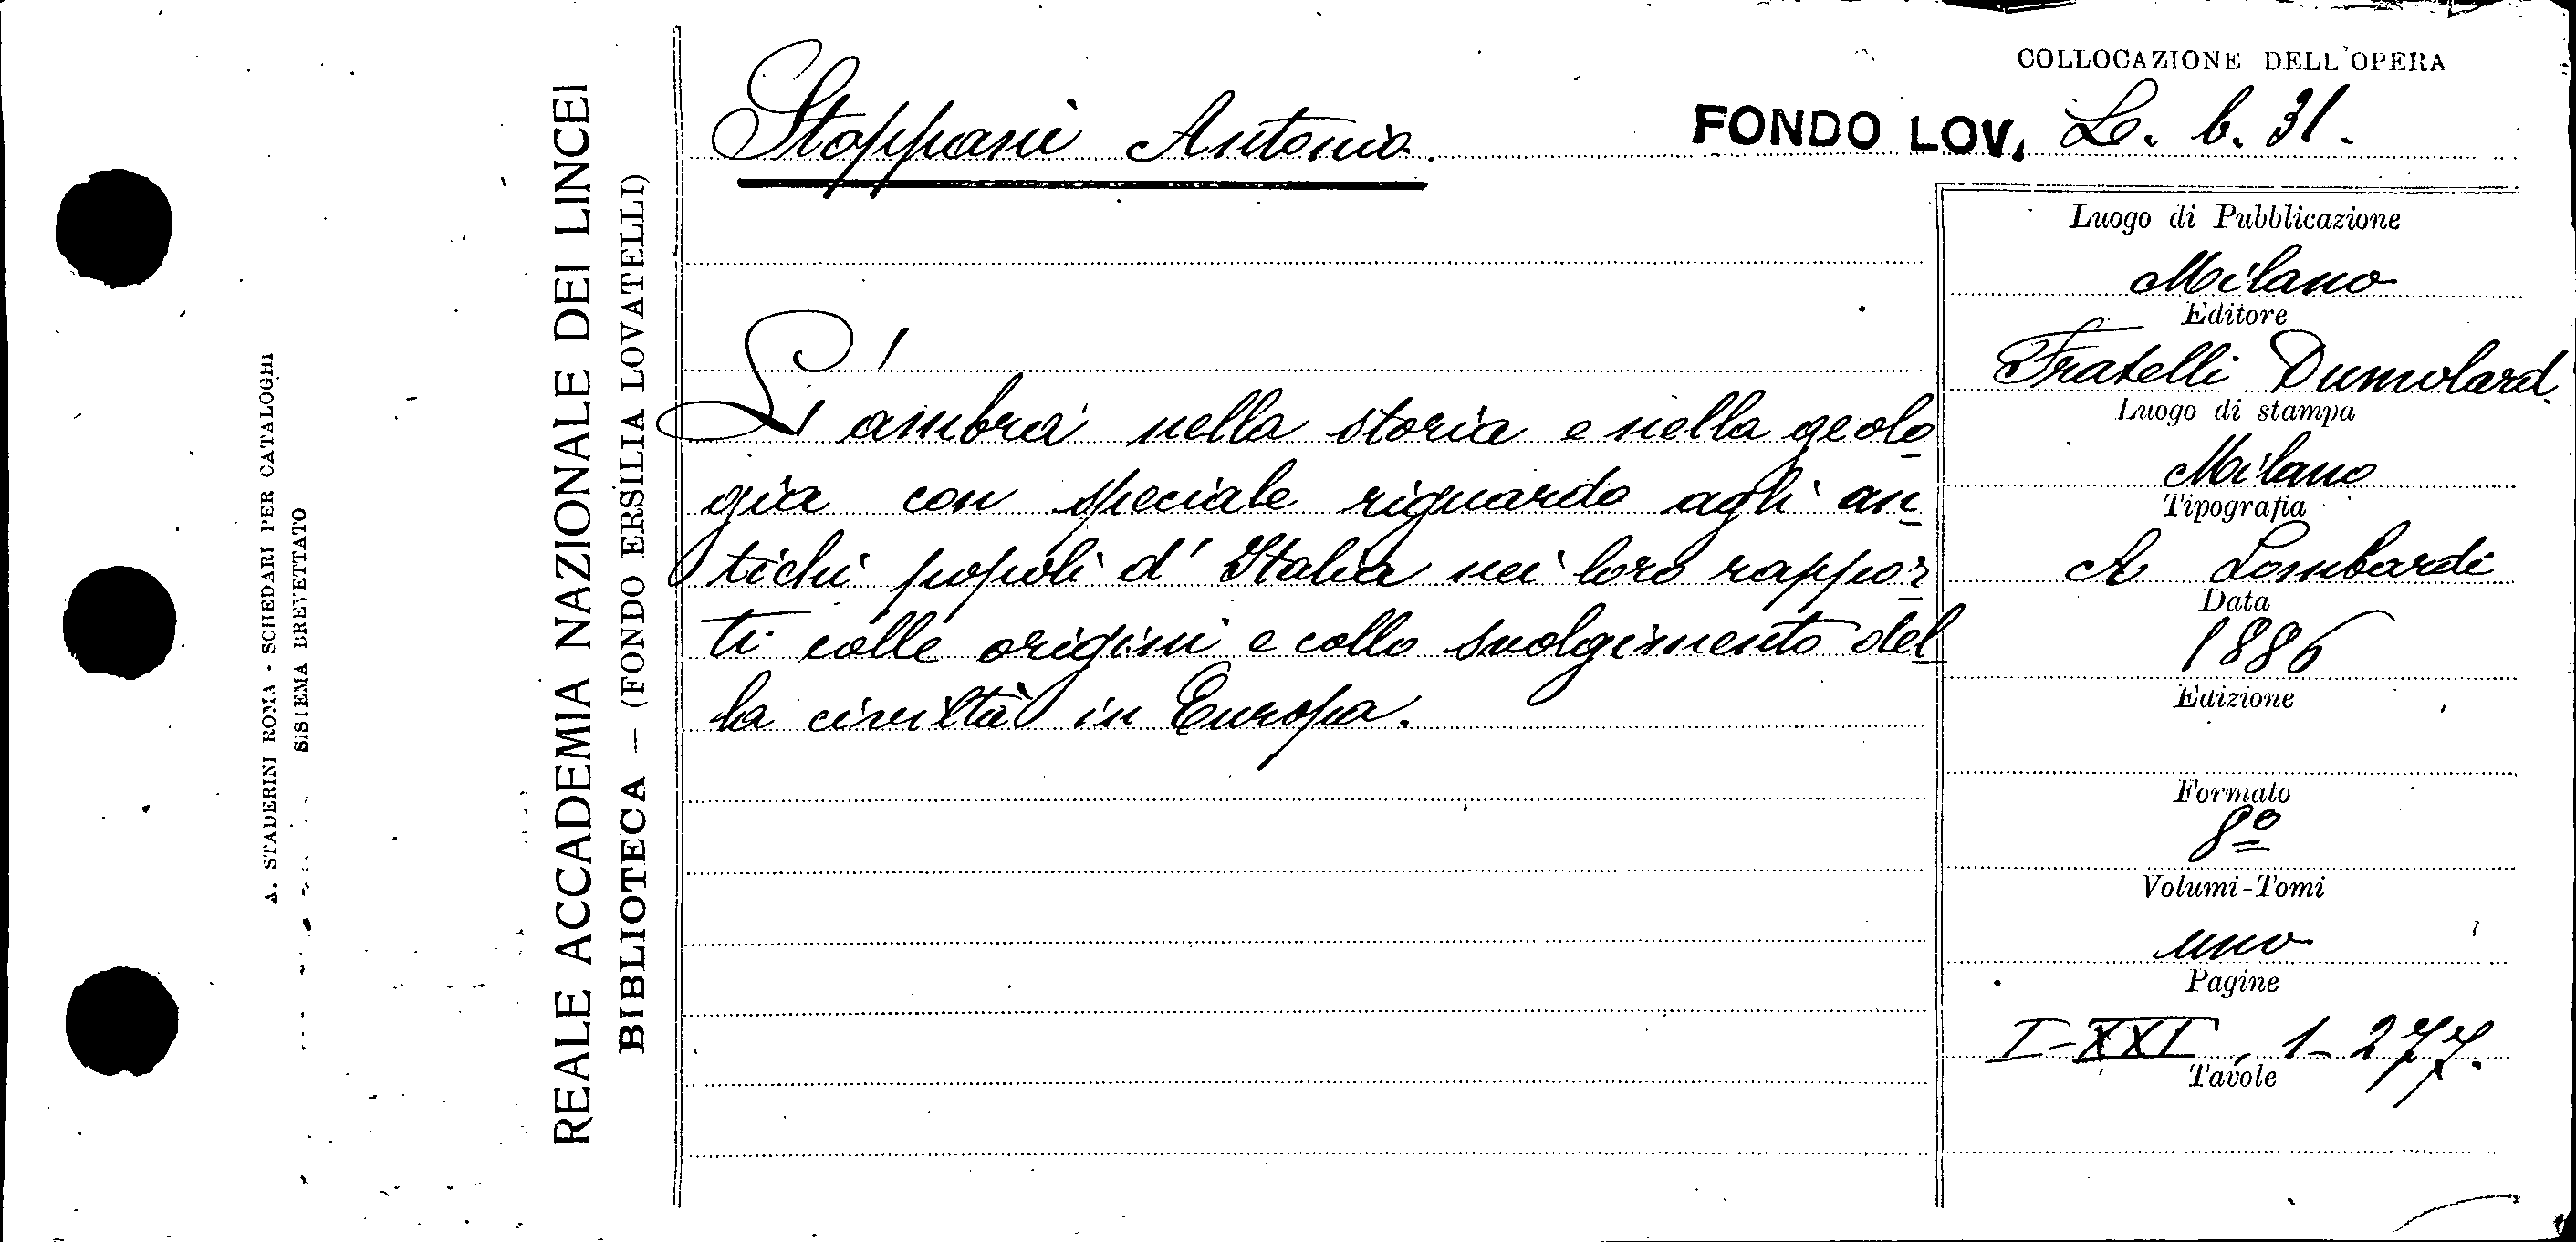 A. STADERINI ROMA - SCHEDARI PER CATALOGHI
SISTEMA BREVETTATO
REALE ACCADEMIA NAZIONALE DEI LINCEI
BIBLIOTECA — (FONDO ERSILIA LOVATELLI)
Stoppani Antonio.
COLLOCAZIONE DELL'OPERA
FONDO LOV. L. b. 31.
L'ambra nella storia e nella geolo-
gia con speciale riguardo agli an-
tichi popoli d'Italia nei loro rappor-
ti colle origini e collo svolgimento del-
la civiltà in Europa.
Luogo di Pubblicazione
Milano
Editore
Fratelli Dumolard.
Luogo di stampa
Milano
Tipografia
A Lombardi
Data
1886
Edizione
Formato
8º
Volumi-Tomi
uno
Pagine
I-XXI, 1-277.
Tavole